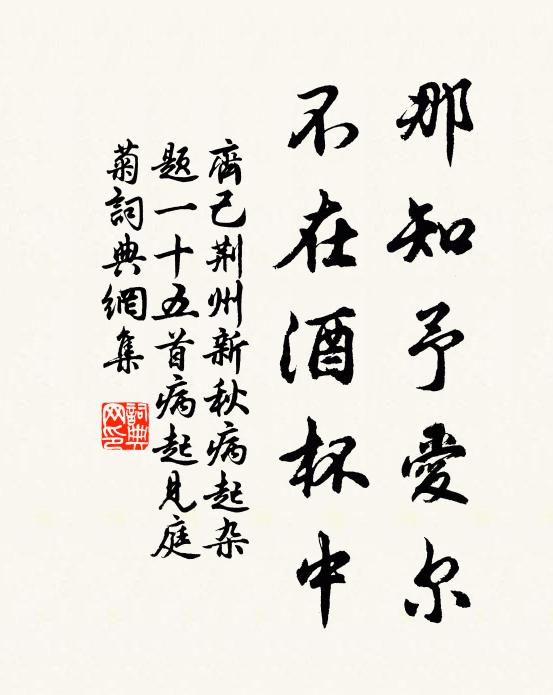 那知予愛尔
不在酒杯中
齊己荆州新秋病起杂
题一十五首病起見庭
菊詞典網集
詞典
网印